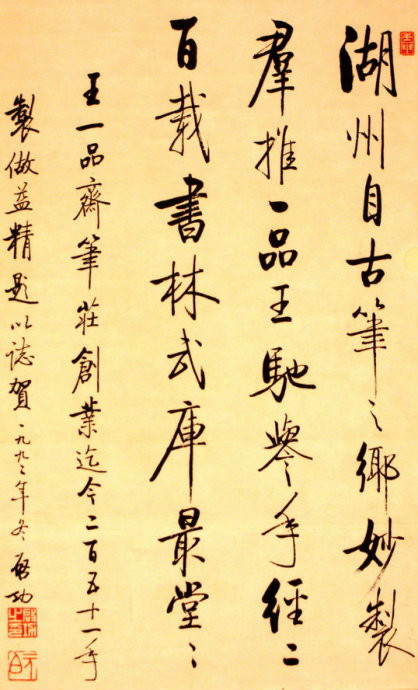 湖州自古筆之鄉妙製
羣推一品王馳譽年經二
百載書林武庫最堂〻
王一品齋筆莊創業迄今二百五十一年
製做益精題以誌賀一九九二年冬啟功